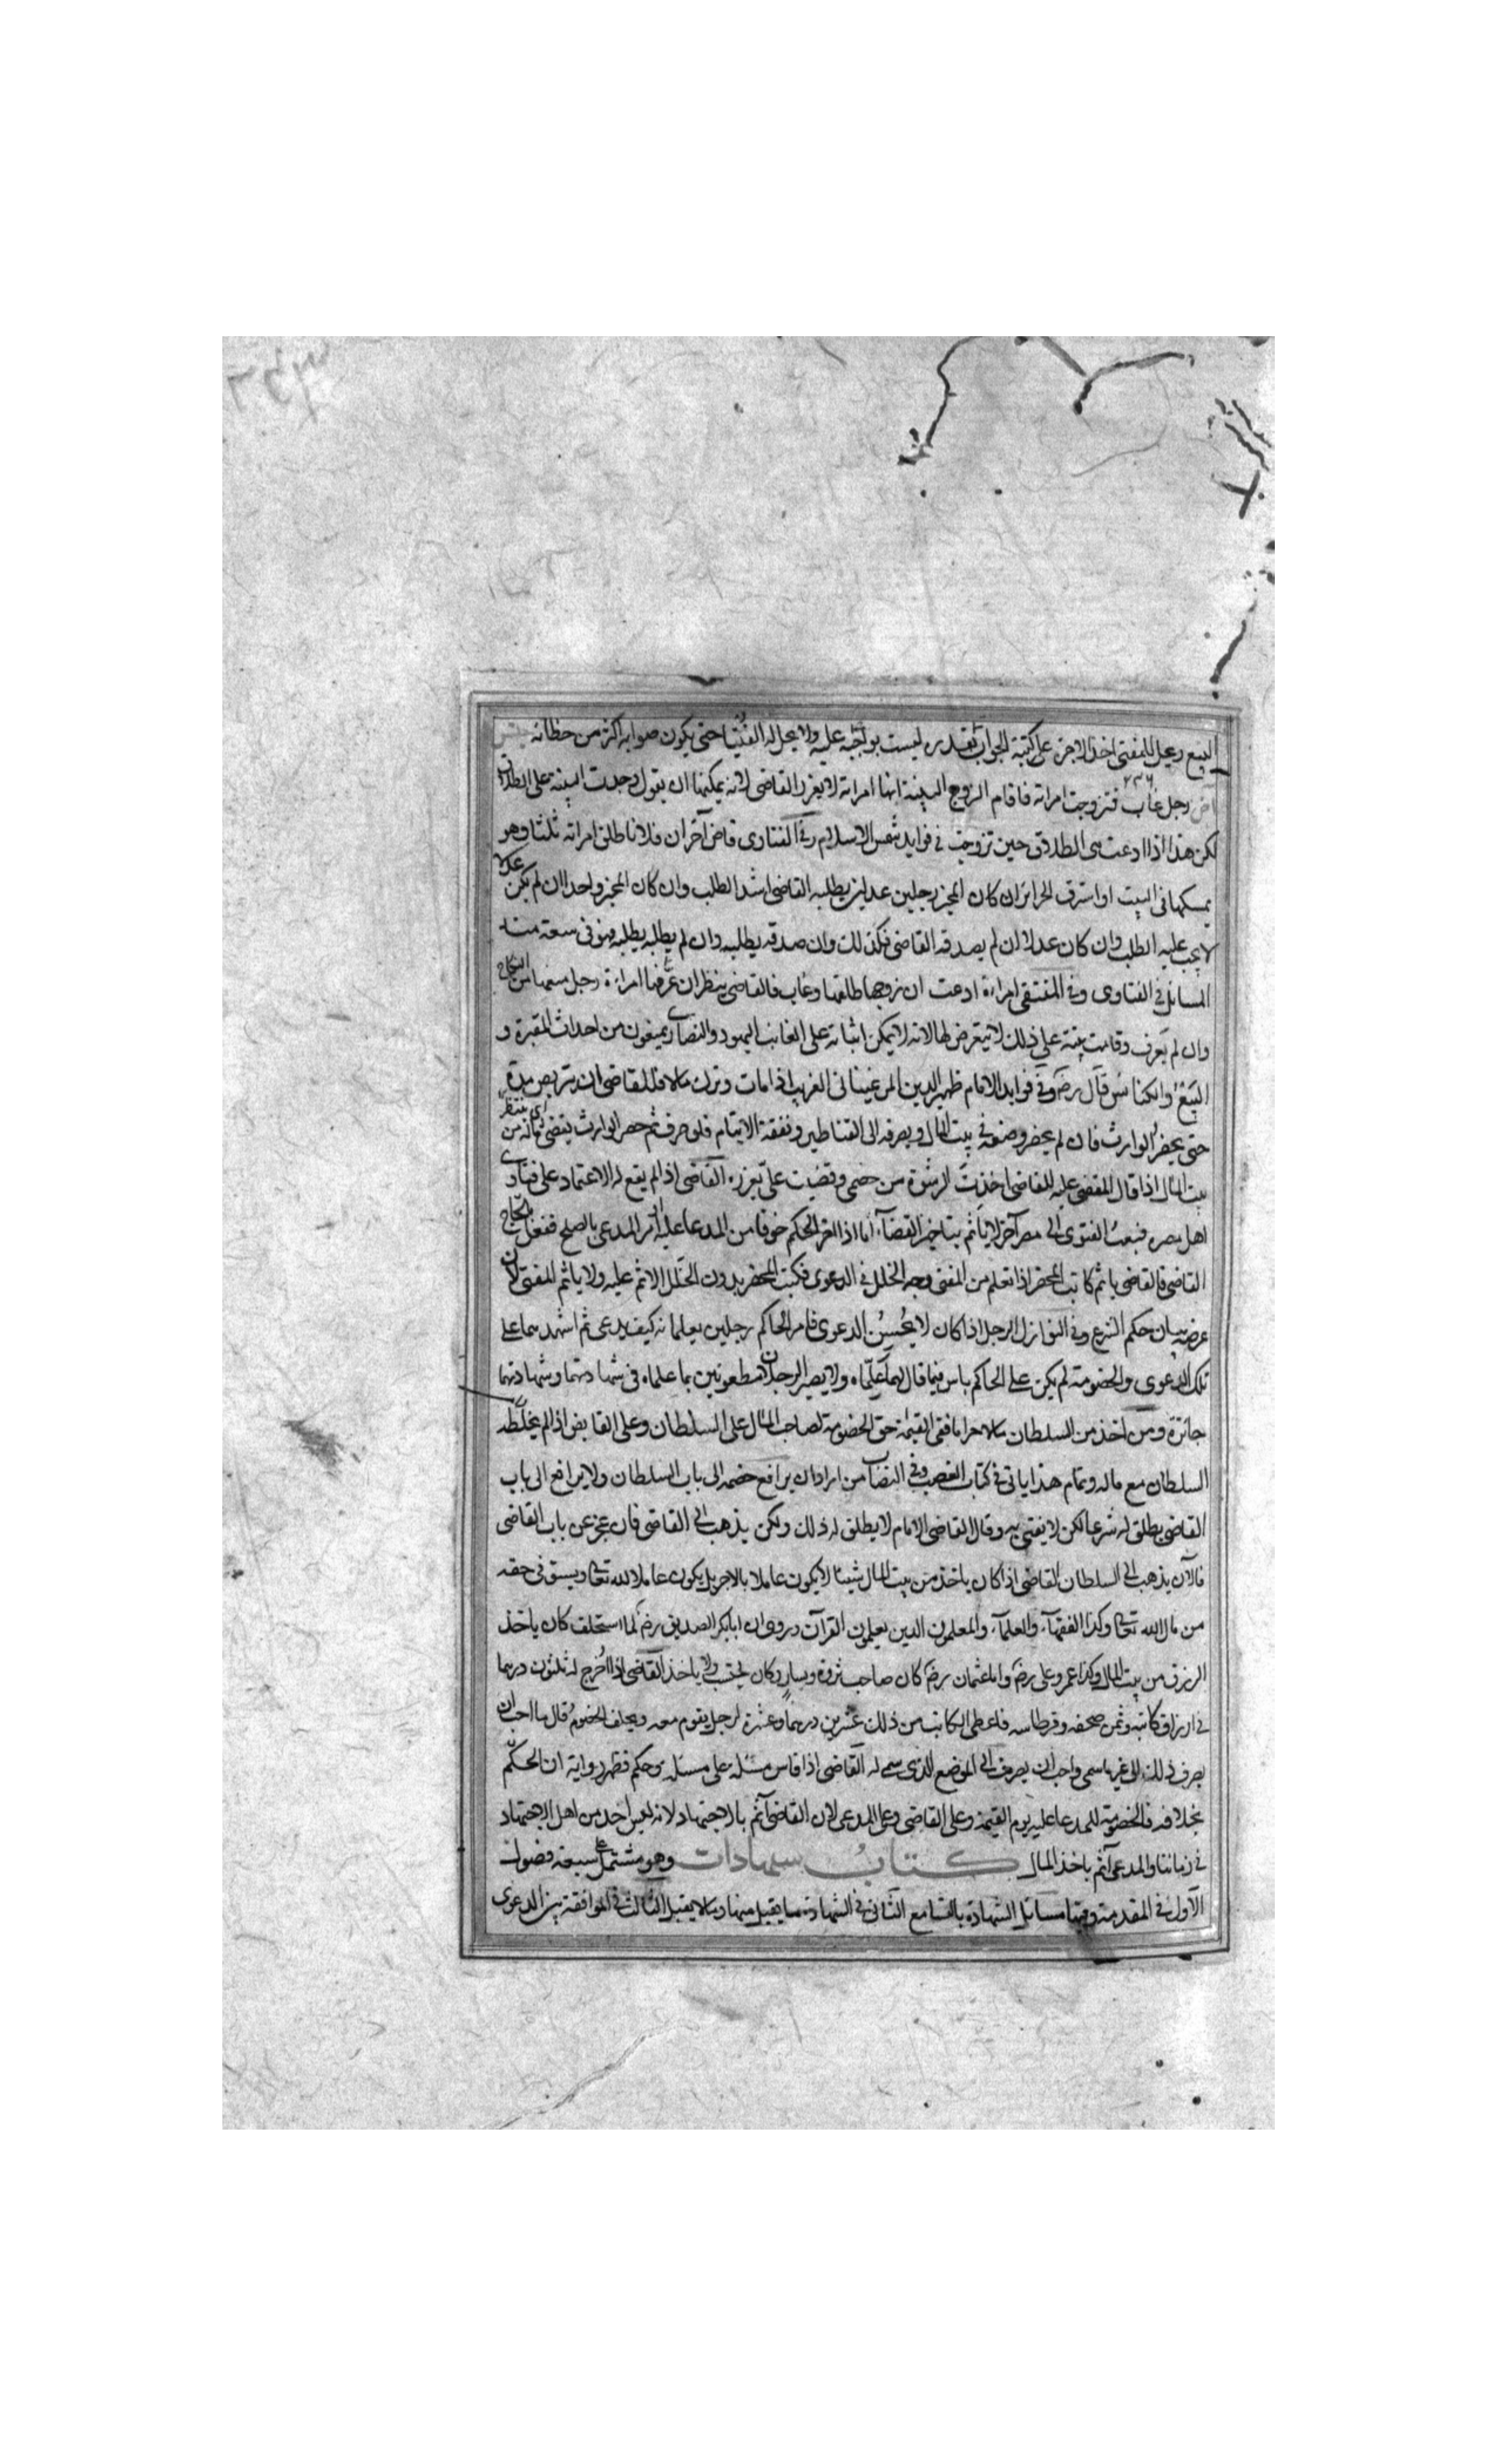 البيع ويحل للمفتى اخذ الاجرة على كتبة الجواب بقدره ليست بواجبة عليه ولا يحل له الفتيا حتى يكون صوابه اكثر من خطائه
رجل غاب فتزوجت امراته فاقام الزوج البينة انها امراته لا يعزر القاضى لانه يمكنها ان يقول وجدت البينة على الطلاق
لكن هذا اذا ادعت هى الطلاق حين تزوجت فى فوايد شمس الاسلام وفى الفتاوى قاض اخر ان فلانا طلق امراته ثلثا وهو
يمسكها فى البيت او استرق الحرائر ان كان المخبر رجلين عدلين يطلبه القاضى اشد الطلب وان كان المخبر واحدا ان لم يكن عدلا
لا يجب عليه الطلب وان كان عدلا ان لم يصدقه القاضى فكذلك وان صدقه يطلبه وان لم يطلبه يطلبه فهو فى سعة منه
المسائل فى الفتاوى وفى المنتقى امراءة ادعت ان زوجها طلقها وغاب فالقاضى ينظر ان عرفها امراءة رجل منعها من النكاح
وان لم يعرف وقامت بينة على ذلك لا يتعرض لها لانه لا يمكن اثباته على الغائب اليهود والنصارى يمنعون من احداث المقبرة و
البيع والكنائس قال رضه وفى فوايد الامام ظهير الدين المرغينانى الغريب اذا مات وترك مالا فللقاضى ان يتربص مدة
حتى يحضر الوارث فان لم يحضر وضعه فى بيت المال ويصرفه الى القناطير ونفقة الايتام فلو صرف ثم حضر الوارث يقضى ماله من
بيت المال اذا قال المقضى عليه للقاضى اخذت الرشوة من خصمى وقضيت على يعزره القاضى اذا لم يقع له الاعتماد على فتاوى
اهل مصره فبعث الفتوى الى مصر آخر لا ياثم بتاخير القضاء اما اذا اخر الحكم خوفا من المدعا عليه او امر المدعى بالصلح ففعل
القاضى فالقاضى ياثم كاتب المحضر اذا تعلم من المفتى وجه الخلل فى الدعوى فكتب المحضر بدون الخلل الاثم عليه ولا ياثم المفتى لان
غرضه بيان حكم الشرع وفى النوازل الرجل اذا كان لا يحسن الدعوى فامر الحاكم رجلين يعلمانه كيف يدعى ثم اشهدهما على
تلك الدعوى والخصومة لم يكن على الحاكم باس فيما قال لهما علماه ولا يصير الرجلان مطعونين بما علماه فى شهادتهما وشهادتهما
جائزة ومن اخذ من السلطان مالا حراما ففى القيمة حق الخصومة لصاحب المال على السلطان وعلى القابض اذا لم يخلطه
السلطان مع ماله وتمام هذا ياتى فى كتاب الغصب وفى النصاب من اراد ان يرافع خصمه الى باب السلطان ولا يرافع الى باب
القاضى يطلق له شرعا لكن لا يفتى به وقال القاضى الامام لا يطلق له ذلك ولكن يذهب الى القاضى فان عجز عن باب القاضى
فالآن يذهب الى السلطان القاضى اذا كان ياخذ من بيت المال شيئا لا يكون عاملا بالاجر بل يكون عاملا لله تعالى ويستوفى حقه
من مال الله تعالى وكذا الفقهاء والعلماء والمعلمون الذين يعلمون القرآن وروى ان ابابكر الصديق رضه لما استخلف كان ياخذ
الرزق من بيت المال وكذا عمر وعلى رضه واما عثمان رضه كان صاحب ثروة ويسار وكان يحتسب ولا ياخذ القاضى اذا اخرج له ثلثون درهما
فى ارزاق كاتبه وثمن صحفه وقرطاسه فاعطى الكاتب من ذلك عشرين درهما وعشرة لرجل يقوم معه ويحلف الخصوم قال ما احب ان
يصرف ذلك الى غير ما سمى واحب ان يصرف الى الموضع الذى سمى له القاضى اذا قاس مسئلة على مسئلة وحكم فظهر رواية ان الحكم
بخلافه فالخصومة للمدعا عليه يوم القيمة وعلى القاضى وعلى المدعى لان القاضى آثم بالاجتهاد لانه ليس احد من اهل الاجتهاد
فى زماننا والمدعى آثم باخذ المال كتاب شهادات وهو مشتمل على سبعة فصول
الاول فى المقدمة وفيها مسائل الشهادة بالتسامع الثانى فى الشهادة ما يقبل منها وما لا يقبل الثالث فى الموافقة بين الدعوى